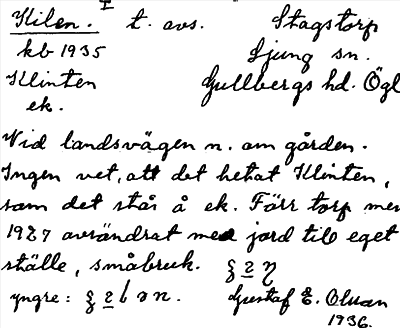 Kilen. t. avs. Stagstorp
kb 1935 Ljung sn.
Klinten Gullbergs hd. Ögl
ek.
Vid landsvägen n. om gården.
Ingen vet, att det hetat Klinten,
som det står å ek. Förr torp men
1927 avsändrat med jord till eget
ställe, småbruk.
yngre: Gustaf E. Olsson
1936.